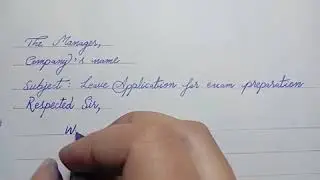 The Manager,
Company's name
Subject: Leave Application for exam preparation
Respected Sir,
W